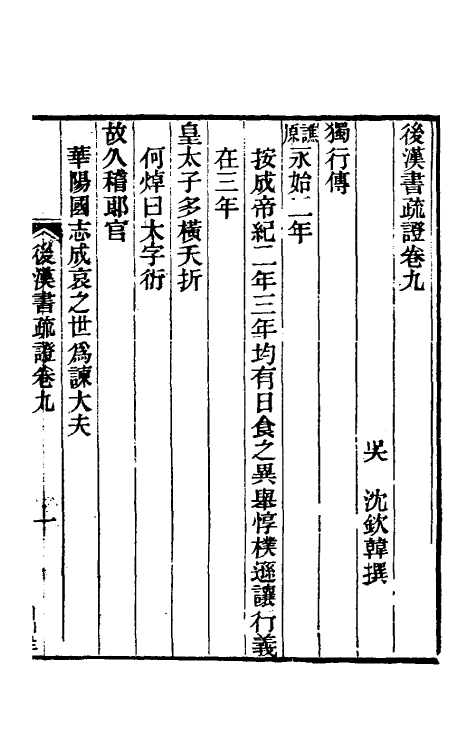 後漢書疏證卷九
吴 沈欽韓撰
獨行傳
譙原永始二年
按成帝紀二年三年均有日食之異舉惇樸遜讓行義
在三年
皇太子多橫夭折
何焯曰太字衍
故久稽郎官
華陽國志成哀之世爲諫大夫
後漢書疏證卷九
一